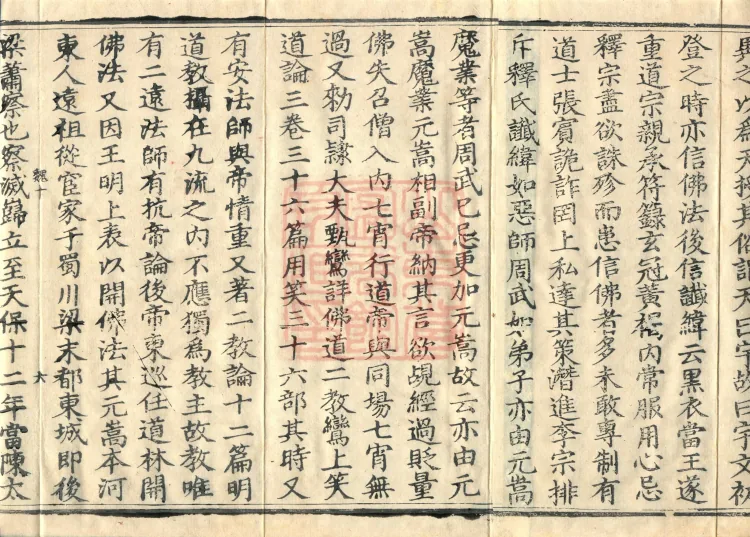 登之時亦信佛法後信讖緯云黑衣當王遂
重道宗親承符籙玄冠黃褐內常服用心忌
釋宗盡欲誅殄而患信佛者多未敢專制有
道士張賓詭詐罔上私達其策潛進李宗排
斥釋氏讖緯如惡師周武如弟子亦由元嵩
魔業等者周武已忌更加元嵩故云亦由元
嵩魔業元嵩相副帝納其言欲覘經過貶量
佛失召僧入內七宵行道帝與同場七宵無
過又勑司隸大夫甄鸞詳佛道二教鸞上笑
道論三卷三十六篇用笑三十六部其時又
有安法師與帝情重又著二教論十二篇明
道教攝在九流之內不應獨為教主故教唯
有二遠法師有抗帝論後帝東巡任道林開
佛法又因王明上表以開佛法其元嵩本河
東人遠祖從宦家于蜀川梁末都東城即後
梁蕭詧也詧滅歸立至天保十二年當陳太